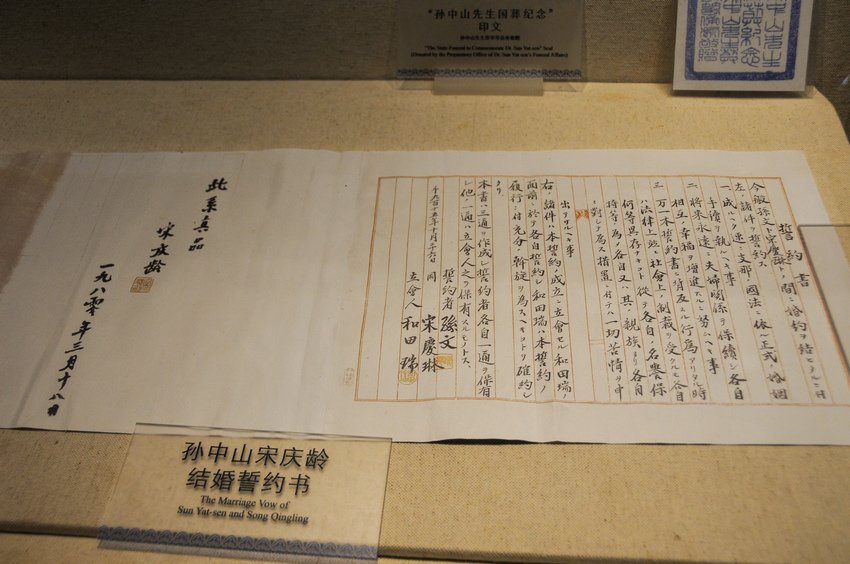 “孙中山先生国葬纪念”
印文
孙中山先生葬事筹备处赠
"The State Funeral to Commemorate Dr. Sun Yat-sen" Seal
(Donated by the Preparatory Office of Dr. Sun Yat-sen's Funeral Affairs)
誓約書
今般孫文ト宋慶琳トノ間ニ婚約ヲ結ヒタルニ付
左ノ諸件ヲ誓約ス
一、成ルヘク速ニ支那ノ國法ニ依ル正式ノ婚姻
手續ヲ執ルヘキ事
二、將来永遠ニ夫婦関係ヲ保續シ各自
相互ノ幸福ヲ増進スルニ努ムヘキ事
三、万一本誓約書ニ背反スル行為アリタル時
ハ法律上並ニ社會上ノ制裁ヲ受クルモ各自
何等異存ナキコト従テ各自ノ名譽保
持等ノ為メ各自又ハ其ノ親族ヨリ各自
ニ對シ為ス措置ニ付テハ一切苦情ヲ申
出テサルヘキ事
右ノ諸件ハ本誓約ノ成立ニ立會セル和田瑞ノ
面前ニ於テ各自誓約シ和田瑞ハ本誓約ノ
履行ニ付充分ノ斡旋ヲ為スヘキコトヲ確約シ
タリ
本書ハ三通ヲ作成シ誓約者各自一通ヲ保有
シ他ノ一通ハ立會人之ヲ保有スルモノトス、
千九百十五年十月二十六日
誓約者 孫文
同 宋慶琳
立會人 和田瑞
此系真品
宋庆龄
一九八零年三月十八日
孙中山宋庆龄
结婚誓约书
The Marriage Vow of
Sun Yat-sen and Song Qingling